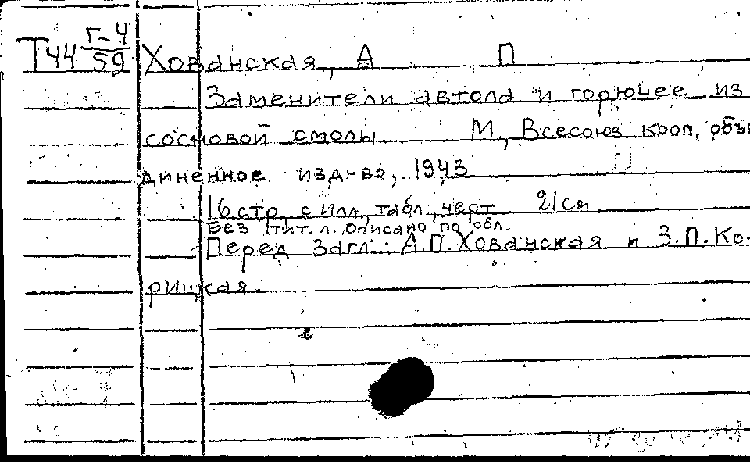 Т44 Г-4/59 Хованская, А П
Заменители автола и горючее из
сосновой смолы М., Всесоюз. кооп. объе
диненное изд-во, 1943
16 стр. с илл., табл., черт. 21 см
Без тит. л. Описано по обл.
Перед загл.: А.П.Хованская и З.П.Ко-
рицкая.